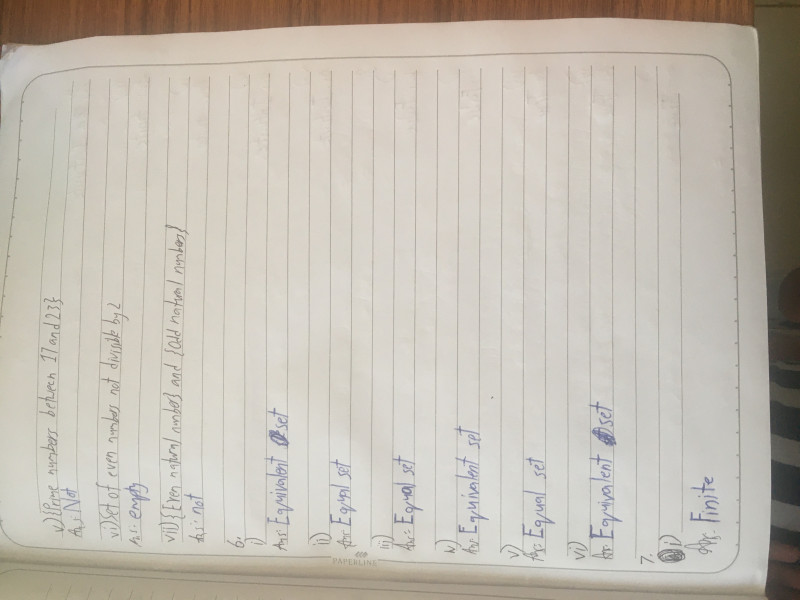 v) {Prime numbers between 17 and 23}
Ans: Not
vi) Set of even numbers not divisible by 2
Ans: empty
vii) {Even natural numbers} and {Odd natural numbers}
Ans: not
6.
i)
Ans: Equivalent set
ii)
Ans: Equal set
iii)
Ans: Equal set
iv)
Ans: Equivalent set
v)
Ans: Equal set
vi)
Ans: Equivalent set
7.
i)
Ans: Finite
PAPERLINE